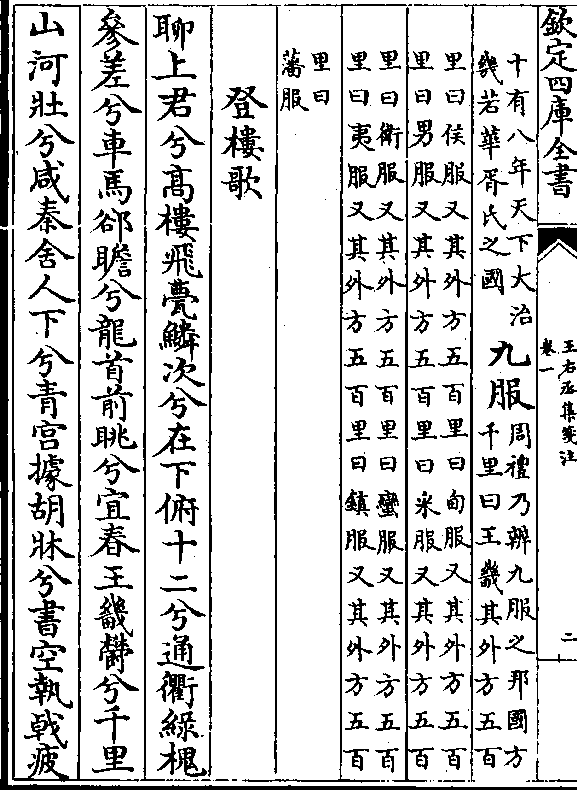 欽定四庫全書
王右丞集箋注
卷一
二
十有八年天下大治
幾若華胥氏之國
九服
周禮乃辨九服之邦國方
千里曰王畿其外方五百
里曰侯服又其外方五百里曰甸服又其外方五百
里曰男服又其外方五百里曰采服又其外方五百
里曰衛服又其外方五百里曰蠻服又其外方五百
里曰夷服又其外方五百里曰鎮服又其外方五百
里曰
藩服
登樓歌
聊上君兮高樓飛甍鱗次兮在下俯十二兮通衢綠槐
參差兮車馬卻瞻兮龍首前眺兮宜春王畿鬱兮千里
山河壯兮咸秦舍人下兮青宮據胡牀兮書空執戟疲